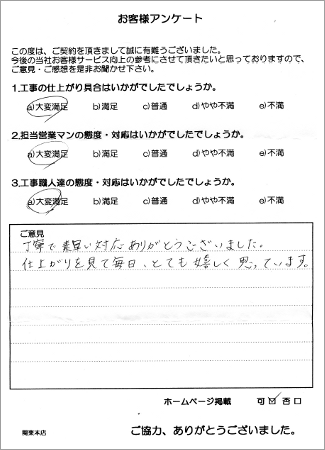 お客様アンケート
この度は、ご契約を頂きまして誠に有難うございました。
今後の当社お客様サービス向上の参考にさせて頂きたいと思っておりますので、
ご意見・ご感想を是非お聞かせ下さい。
1.工事の仕上がり具合はいかがでしたでしょうか。
a)大変満足 b)満足 c)普通 d)やや不満 e)不満
2.担当営業マンの態度・対応はいかがでしたでしょうか。
a)大変満足 b)満足 c)普通 d)やや不満 e)不満
3.工事職人達の態度・対応はいかがでしたでしょうか。
a)大変満足 b)満足 c)普通 d)やや不満 e)不満
ご意見
丁寧で素早い対応ありがとうございました。
仕上がりを見て毎日、とても嬉しく思っています。
ホームページ掲載 可 ☑ 否 □
関東本店 ご協力、ありがとうございました。